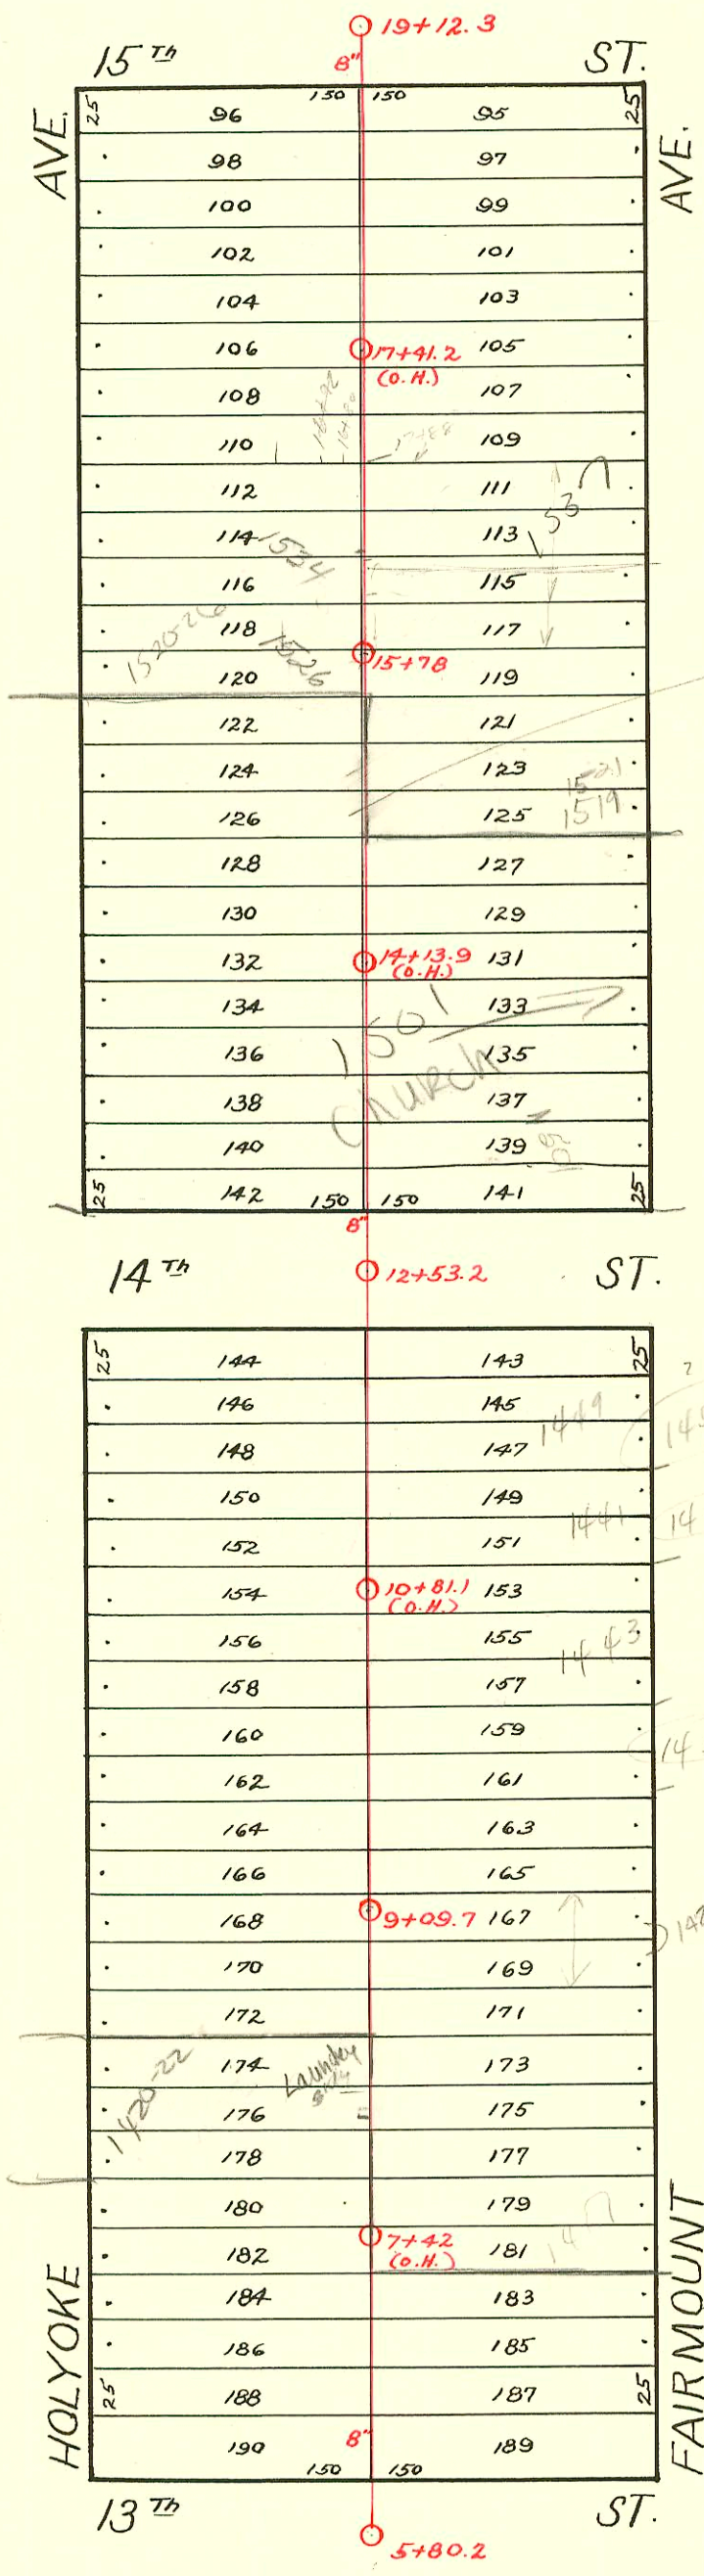 19+12.3
15 Th ST.
8"
AVE. AVE.
25 150 150 25
96 95
98 97
100 99
102 101
104 103
106 17+41.2 105
(O.H.)
108 107
110 109
112 111
1537
114 113
1534
116 115
118 117
1520-26 1526
15+78
120 119
122 121
124 123
1521
126 125 1519
128 127
130 129
132 14+13.9 131
(O.H.)
134 133
1501
136 135
Church
138 137
140 139
25 142 150 150 141 25
8"
14 Th 12+53.2 ST.
25 144 143 25
146 145
1449
148 147
150 149
1441
152 151
154 10+81.1 153
(O.H.)
156 155
1443
158 157
160 159
162 161
164 163
166 165
168 9+09.7 167
170 169
172 171
1420-22
174 173
Laundry
176 175
178 177
180 179
7+42
182 (O.H.) 181
184 183
186 185
25 188 187 25
190 8" 189
150 150
HOLYOKE FAIRMOUNT
13 Th ST.
5+80.2